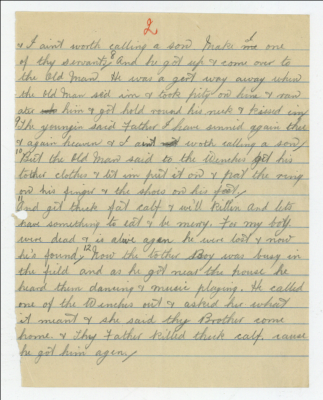 2
& I aint worth calling a son. Make me I one
of thy servants. And he got up & come over to
the Old Man. He was a gert way away when
the Old man sid im & took pity on him & ran
him & got hold round his neck & kissed im
The youngin said Father I have sinned again thee
& again heaven & I aint worth calling a son
But the Old Man said to the Wenches get his
tother clothes & let im put it on & put the ring
on his finger & the shoes on his foot
And get thick fat calf & will killen and lets
have something to eat & be merry. For my boy
were dead & is alive agen he were lost & now
he's found. 12 Now the tother boy was busy in
the field and as he got near the house he
heard them dancing & music playing. He called
one of the Wenches out & asked her what
it meant & she said thy Brother come
home & thy Father killed thick calf, cause
he got him agen